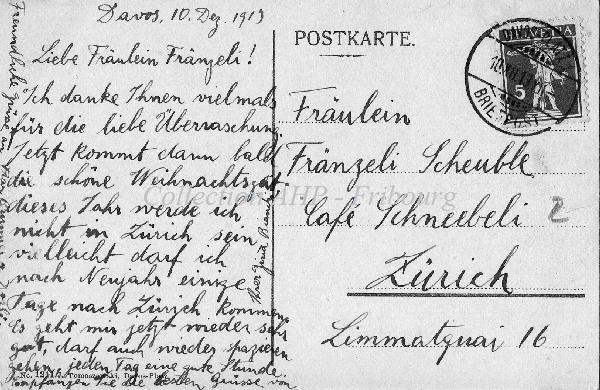 Davos, 10. Dez. 1913
Liebe Fräulein Fränzeli!
Ich danke Ihnen vielmals
für die liebe Überraschung.
Jetzt kommt dann bald
die schöne Weihnachtszeit
dieses Jahr werde ich
nicht in Zürich sein
vielleicht darf ich
nach Neujahr einige
Tage nach Zürich kommen.
Es geht mir jetzt wieder sehr
gut, darf auch wieder spazieren
gehen, jeden Tag eine gute Stunde.
Empfangen Sie die besten Grüsse von
Ihrer
Freundliche Grüsse an
POSTKARTE.
Fräulein
Fränzeli Scheuble
Café Schneebeli
Zürich
Limmatquai 16
HELVETIA
5
BRIEFPOST
2
Collection AHP - Fribourg